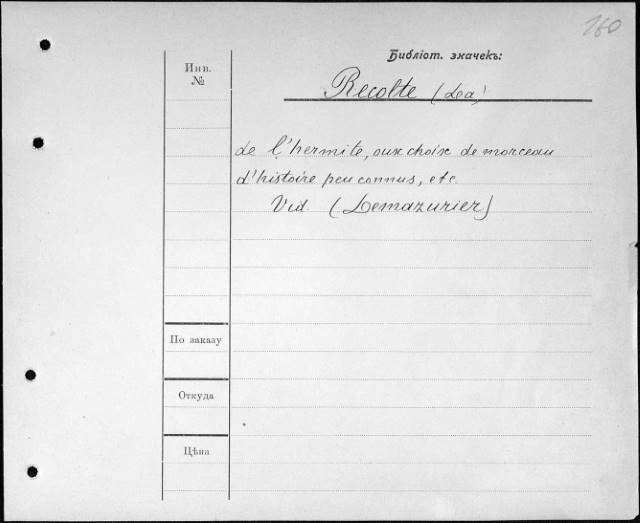 160
Библіот. значекъ:
Инв.
№
Recolte (La)
de l'hermite, oux choix de morceau
d'histoire peu connus, etc.
Vid. (Lemazurier)
По заказу
Откуда
Цѣна